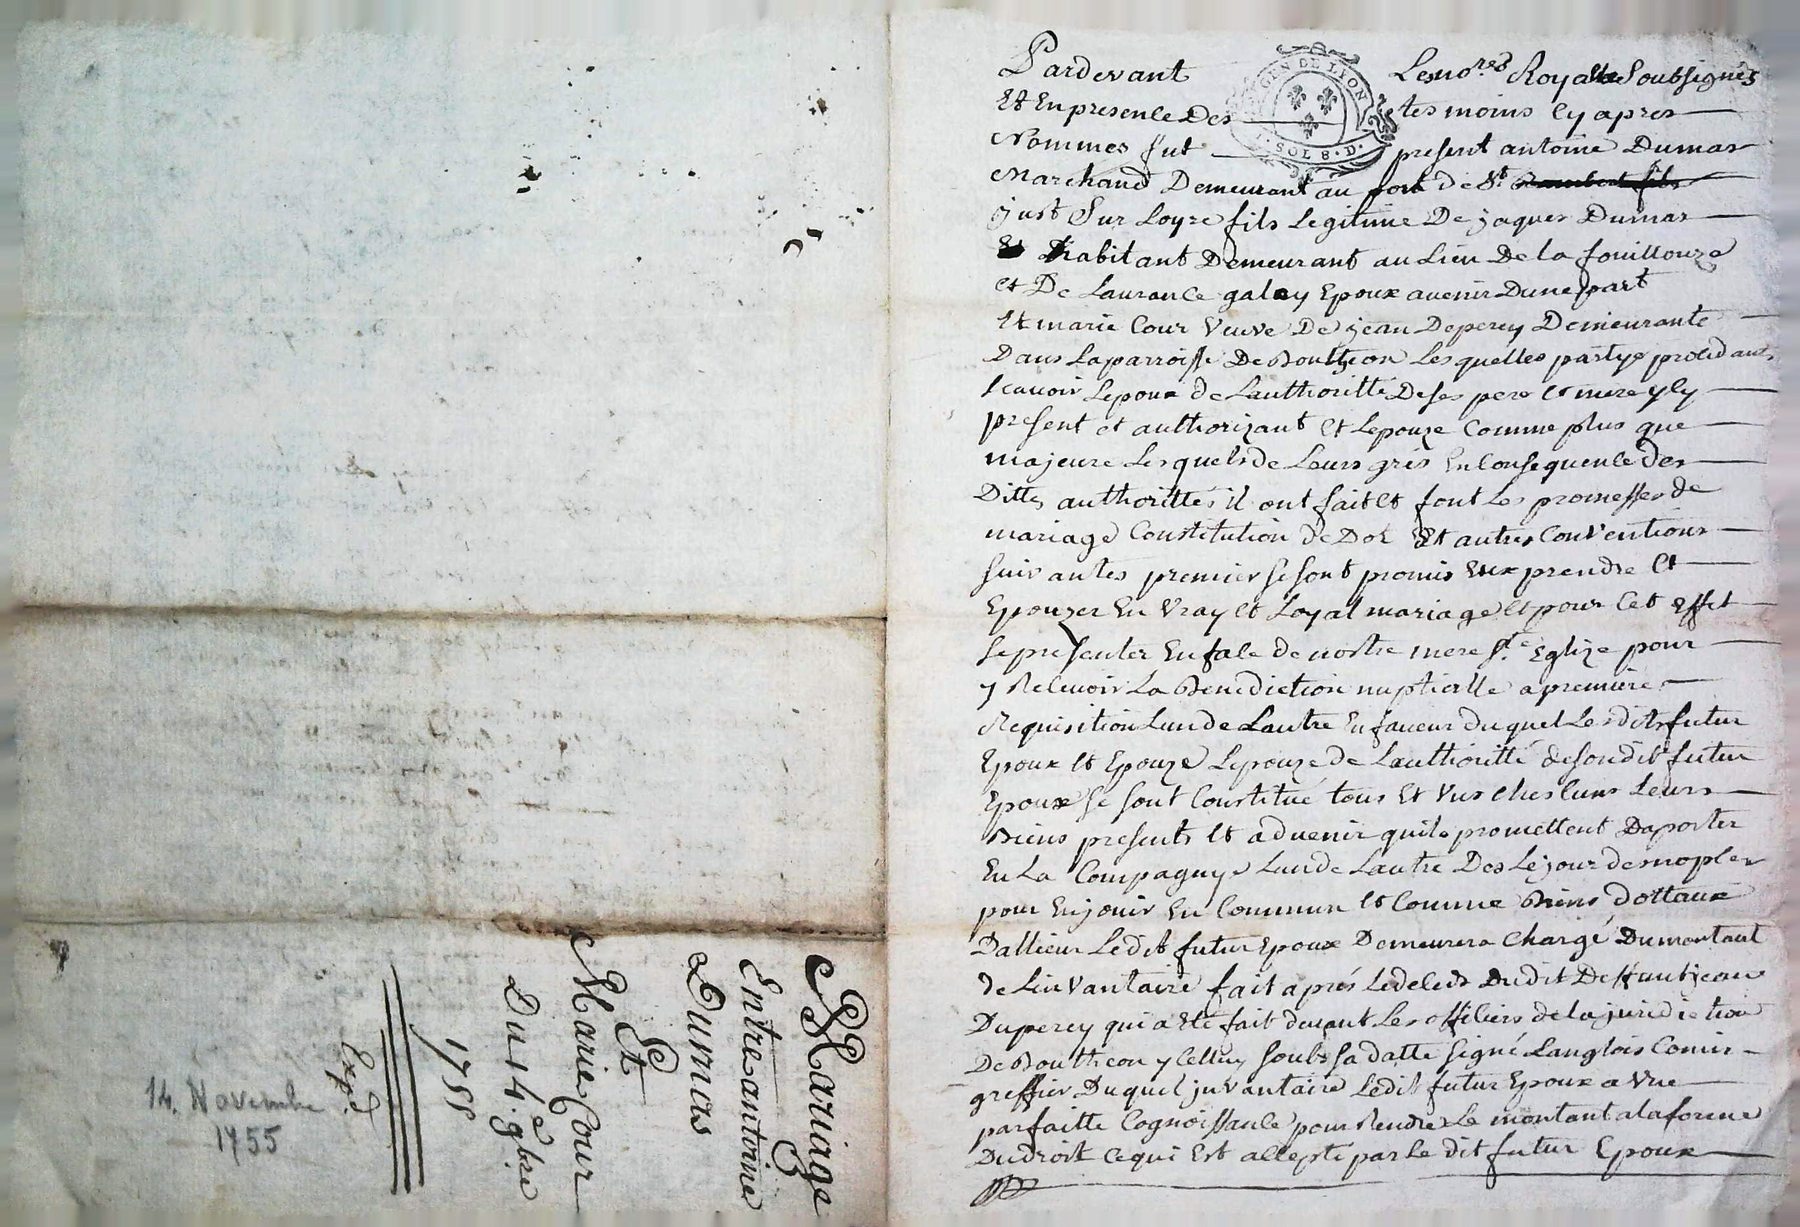 Mariage
Entre antoine
Dumas
Et
Marie Cour
Du 14.e 9bre
1755
Expd.
14. Novembre
1755
GEN DE LYON
SOL 8. D.
Pardevant Les no.res Royaux Soubsignés
Et En presence Des tesmoins cy apres
Nommes fut present antoine Dumas
Marchand Demeurant au port de St. Rambert fils
just Sur Loyre fils Legitime De jaques Dumas
habitant Demeurant au Lieu De la fouillouze
et De Laurance galey Epoux avenir Dune part
Et marie Cour veuve De jean Deperey Demeurante
Dans La parroisse De Boutheon Lesquelles partys procedants
scavoir Lepoux de Lauthoritté De ses pere et mere yly
present et authorizant et Lepouze Comme plus que
majeure Lesquels de Leurs grés En Consequence des
Dittes authorittés il ont fait et font Les promesses de
mariage Constitution de Dot Et autres Conventions
suivantes premier se sont promis Eux prendre et
Epouzer En Vray et Loyal mariage et pour Cet effet
se presenter En face de nostre mere Ste Eglize pour
y Recevoir La Benediction nuptialle a premiere
Requisition Lun de Lautre En faveur duquel Lesdits futur
Epoux et Epouze Lepouze de Lauthoritté de son dit futur
Epoux se sont Constitué tous Et vns chescuns Leurs
Biens presents et advenir quils promettent Daporter
En La Compagnye Lun de Lautre Des Le jour de noples
pour En jouir En Commun et Comme Biens dottaux
Dallieur Ledit futur Epoux Demeurera Chargé Du montant
de Linvantaire fait aprés Le deled dudit Deffunt jean
Duperey qui a Eté fait devant Les officiers de la juridiction
De Boutheon ycelluy soubs sa datte signé Langlois Comis
greffier Duquel juvantaire Ledit futur Epoux a vue
parfaitte Cognoissance pour Rendre Le montant a la forme
Du droit ce qui Est accepté par Le dit futur Epoux